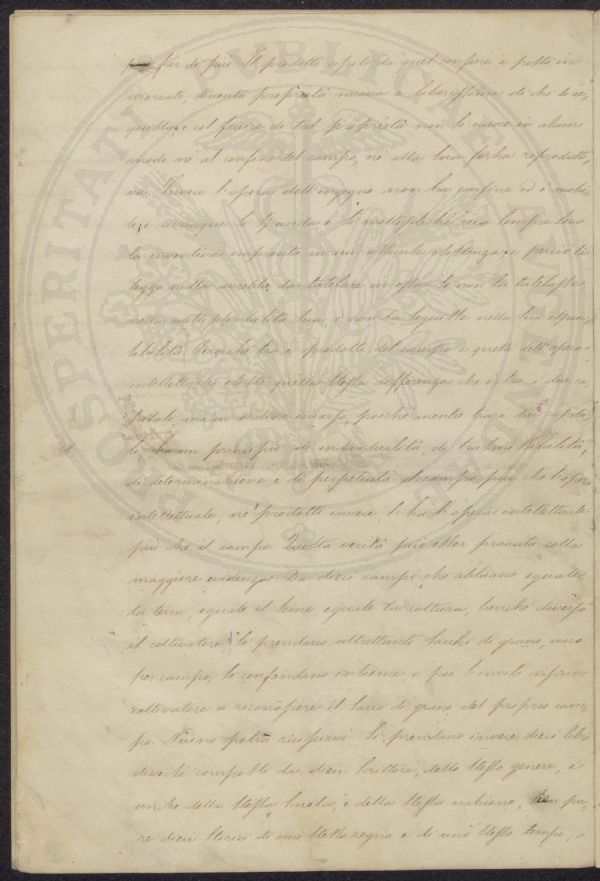 far da frui. Il prodotto uscito da quel confine è posto in
mercato, diventa proprietà nuova e liberissima di chi lo ac-
quista, e col fruire di tal proprietà non si nuoce in alcun
modo nè al confine del campo, nè alla sua forza reprodutti-
va. Invece l'opera dell'ingegno non ha confine ed è mobi-
le, e dovunque si spanda e si moltiplichi reca sempre seco
la inventiva impronta in cui consiste e perciò la
legge nulla avrebbe da tutelare in essa se non la tutelasse
nella moltiplicabilità sua, e non la seguisse nella sua espan-
sibilità. Perciocchè tra i prodotti del campo e quelli dell'opera
intellettuale esiste quella stessa differenza che è tra i due ca-
pitali, ma in ordine inverso, poichè mentre tra i due capitali
si ha un principio di individualità, di trasmissibilità,
di determinazione e di perpetuità al campo più che l'opera
intellettuale, ne' prodotti invece l'ha l'opera intellettuale
più che il campo. Questa verità può esser provata colla
maggiore evidenza. Da dieci campi che abbiano eguale
la terra, eguale il seme, eguale la coltura, benchè diverso
il coltivatore si prendano altrettanti sacchi di grano, uno
per campo, si confondano insieme, e poi s'inviti ciascun
coltivatore a riconoscere il sacco di grano del proprio cam-
po. Niuno potrà riuscirvi. Si prendano invece dieci libri
diversi composti da dieci scrittori, dello stesso genere, e
anche della stessa scuola, e della stessa nazione, sien pu-
re dieci storici di uno stesso regno e di uno stesso tempo, e